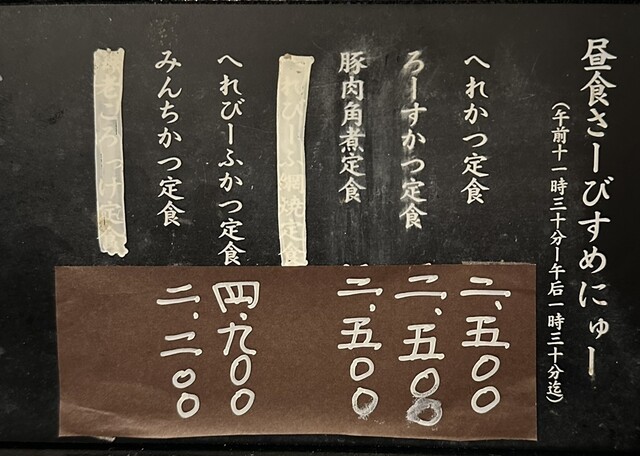 昼食さーびすめにゅー
（午前十一時三十分ー午后一時三十分迄）
へれかつ定食 二、五〇〇
ろーすかつ定食 二、五〇〇
豚肉角煮定食 二、五〇〇
れびーふ網焼定食
へれびーふかつ定食 四、九〇〇
みんちかつ定食 二、二〇〇
老ころっけ定